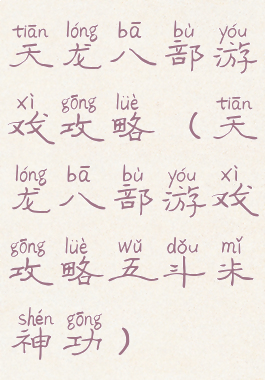 tiān lóng bā bù yóu
天龙八部游
xì gōng lüè tiān
戏攻略（天
lóng bā bù yóu xì
龙八部游戏
gōng lüè wǔ dǒu mǐ
攻略五斗米
shén gōng
神功）